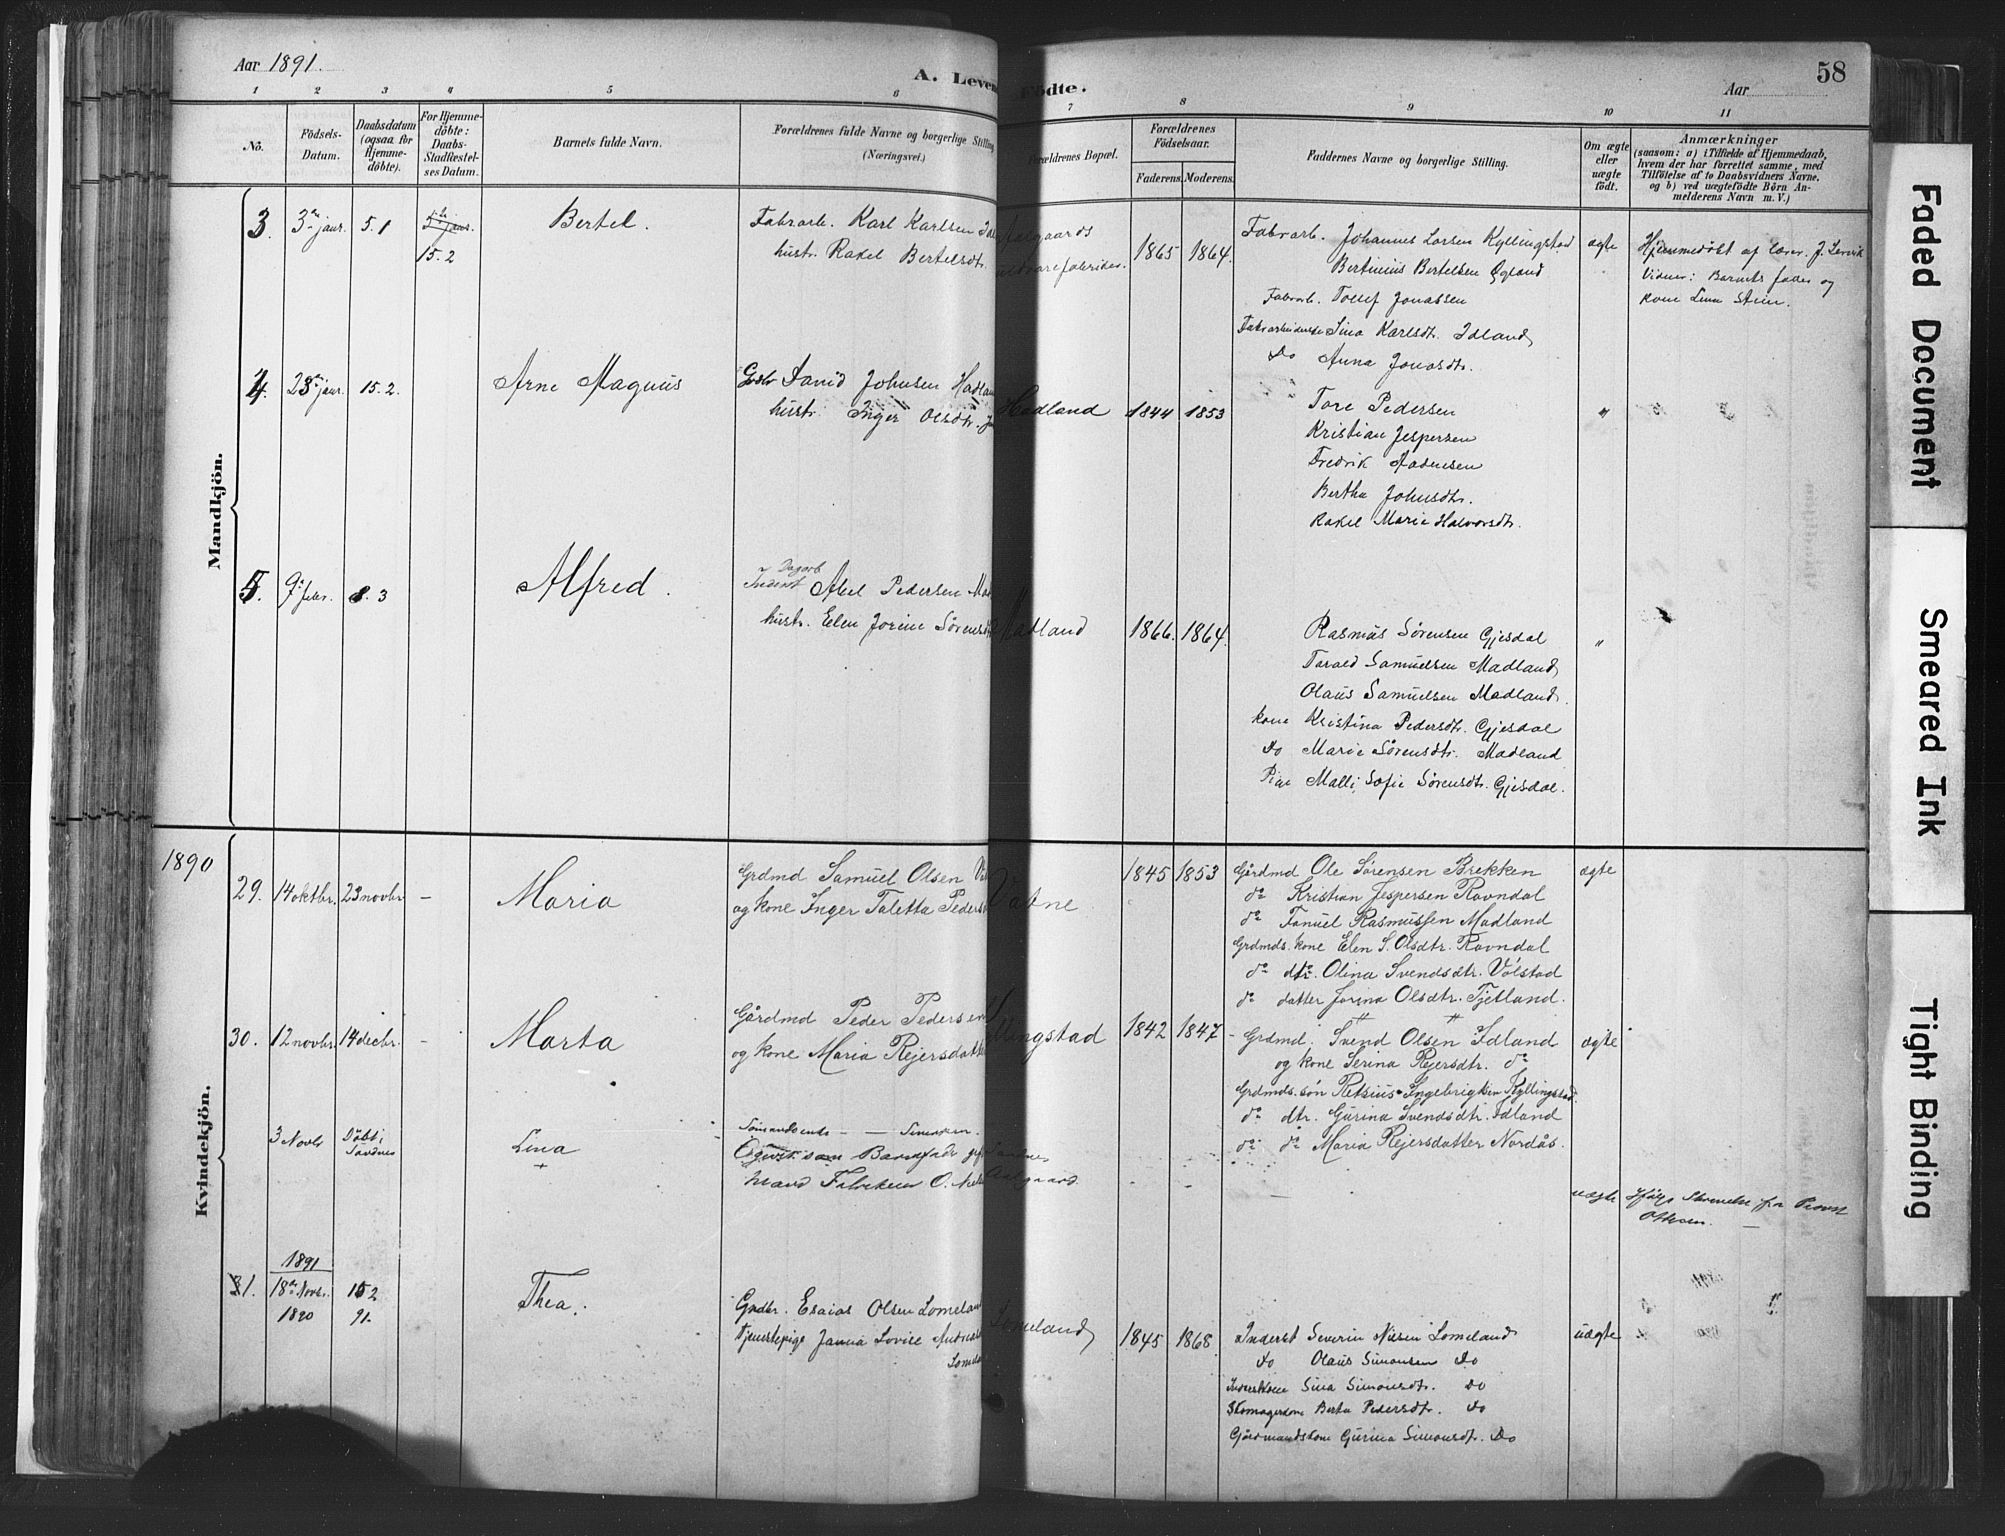 Aar 1891.
A. Leven
Födte.
Aar
58
1 2 3 4 5 6 7 8 9 10 11
No.
Födsels-
Datum.
Daabsdatum
(ogsaa for
Hjemme-
döbte).
For Hjemme-
döbte:
Daabs-
Stadfæstel-
ses Datum.
Barnets fulde Navn.
Forældrenes fulde Navne og borgerlige Stilling
(Næringsvei.)
Forældrenes Bopæl.
Forældrenes
Födselsaar.
Faderens. Moderens.
Faddernes Navne og borgerlige Stilling.
Om ægte
eller
uægte
födt.
Anmærkninger
(saasom: a) i Tilfælde af Hjemmedaab,
hvem der har forrettet samme, med
Tilföielse af to Daabsvidners Navne,
og b) ved uægtefödte Börn An-
melderens Navn m. V.)
Mandkjön.
3. 3 jaur. 5.1
15.2
Bertel.
Fabrarb. Karl Karlsen
hustr. Rakel Bertelsdtr.
Aalgaards
1865 1864.
Fabrarb. Johannes Larsen Kyllingstad
Bertinius Bertelsen Ogland
Fabrarb. Tollef Jonassen
Fabrarbeiderske Sina Karlsdtr. Idland
Do Anna Jonasdtr.
ægte
Hjemmedøbt af lærer. J. Lervik
Vidner: Barnets fader og
kone Lina Stein.
4. 23 jaur. 15.2.
Arne Magnus
David Johnsen Hadland
hustr. Inger Olsdtr.
Hadland
1844 1853
Tore Pedersen
Kristian Jespersen
Fredrik Madnesen
Bertha Johnsdtr.
Rakel Marie Halvorsdtr.
"
5. 9 febr. 8.3
Alfred.
Dagarb
Inderst Abel Pedersen
hustr. Elen Jorine Sørensdtr
Madland
1866. 1864.
Rasmus Sørensen Gjesdal
Torald Samuelsen Madland
Olaus Samuelsen Madland.
kone Kristina Pedersdtr. Gjesdal
Do Marie Sørensdtr. Madland
Pige Malli Sofie Sørensdtr. Gjesdal.
"
Kvindekjön.
1890
29. 14 oktbr. 23 novbr –
Maria
Grdmd Samuel Olsen
og kone Inger Taletta Peders
Vatne
1845 1853
Gårdmd Ole Sørensen Brekken
do Kristian Jespersen Ravndal
do Fanuel Rasmussen Madland
Grdmds. kone Elen S. Olsdtr. Ravndal
do dtr. Olina Svendsdtr. Vølstad
do datter Jorina Olsdtr. Tjetland.
ægte
30. 12 novbr. 14 decbr. –
Marta
Gårdmd Peder Pedersen
og kone Maria Rejersdatter
llingstad
1842 1847
Grdmd. Svend Olsen Idland
og kone Serina Rejersdtr. do
Grdmds. søn Retsius Ingebrigtsen Kyllingstad.
do dtr. Gurina Svendsdtr. Idland
do do Maria Rejersdatter Nordås.
ægte
3 Novbr Døbt i
Sandnes
Lina
+
Opgivet som Barnefader
Sandnes
Aalgaard.
uægte
Ifølge Skrivelse fra Provst
31. 1891
18 Novbr.
1890
15 2
91.
Thea.
Esaias Olsen Lomeland
Tjenstepige Janna Lovise
Lomeland
1845 1868
Inderst Severin Nilsen Lomeland
do Olaus Simonsen do
Inderstkone Sina Simonsdtr. do
Skomagerkone Berta Pedersdtr. do
Gårdmandskone Gurina Simonsdtr. Do
uægte
Faded Document
Smeared Ink
Tight Binding